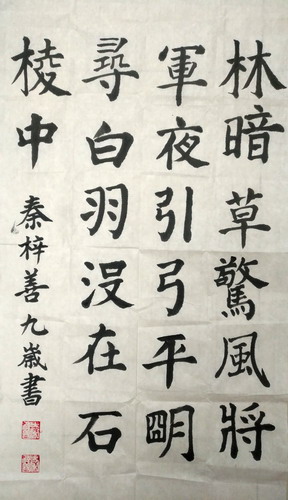 林暗草驚風將
軍夜引弓平明
尋白羽沒在石
棱中
秦梓善九歲書